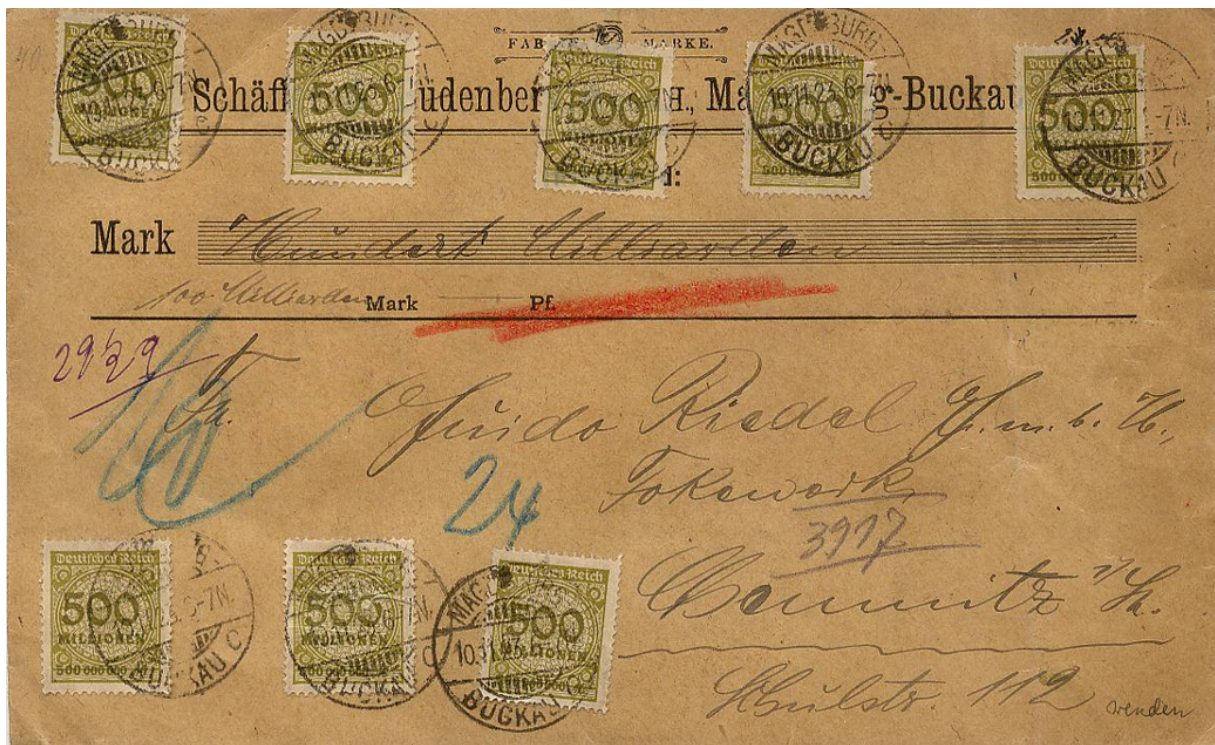 FAB MARKE.
Schäff udenber H., Ma g-Buckau
d:
Mark Hundert Milliarden
100 Milliarden Mark — Pf.
2929
Fa. Guido Riedel G.m.b.H.,
24
Tokawerk
3917
Chemnitz i/Sa.
112
wenden
Deutsches Reich
500
MILLIONEN
500 000 000
MAGDEBURG
10.11.23. 6-7N.
BUCKAU C